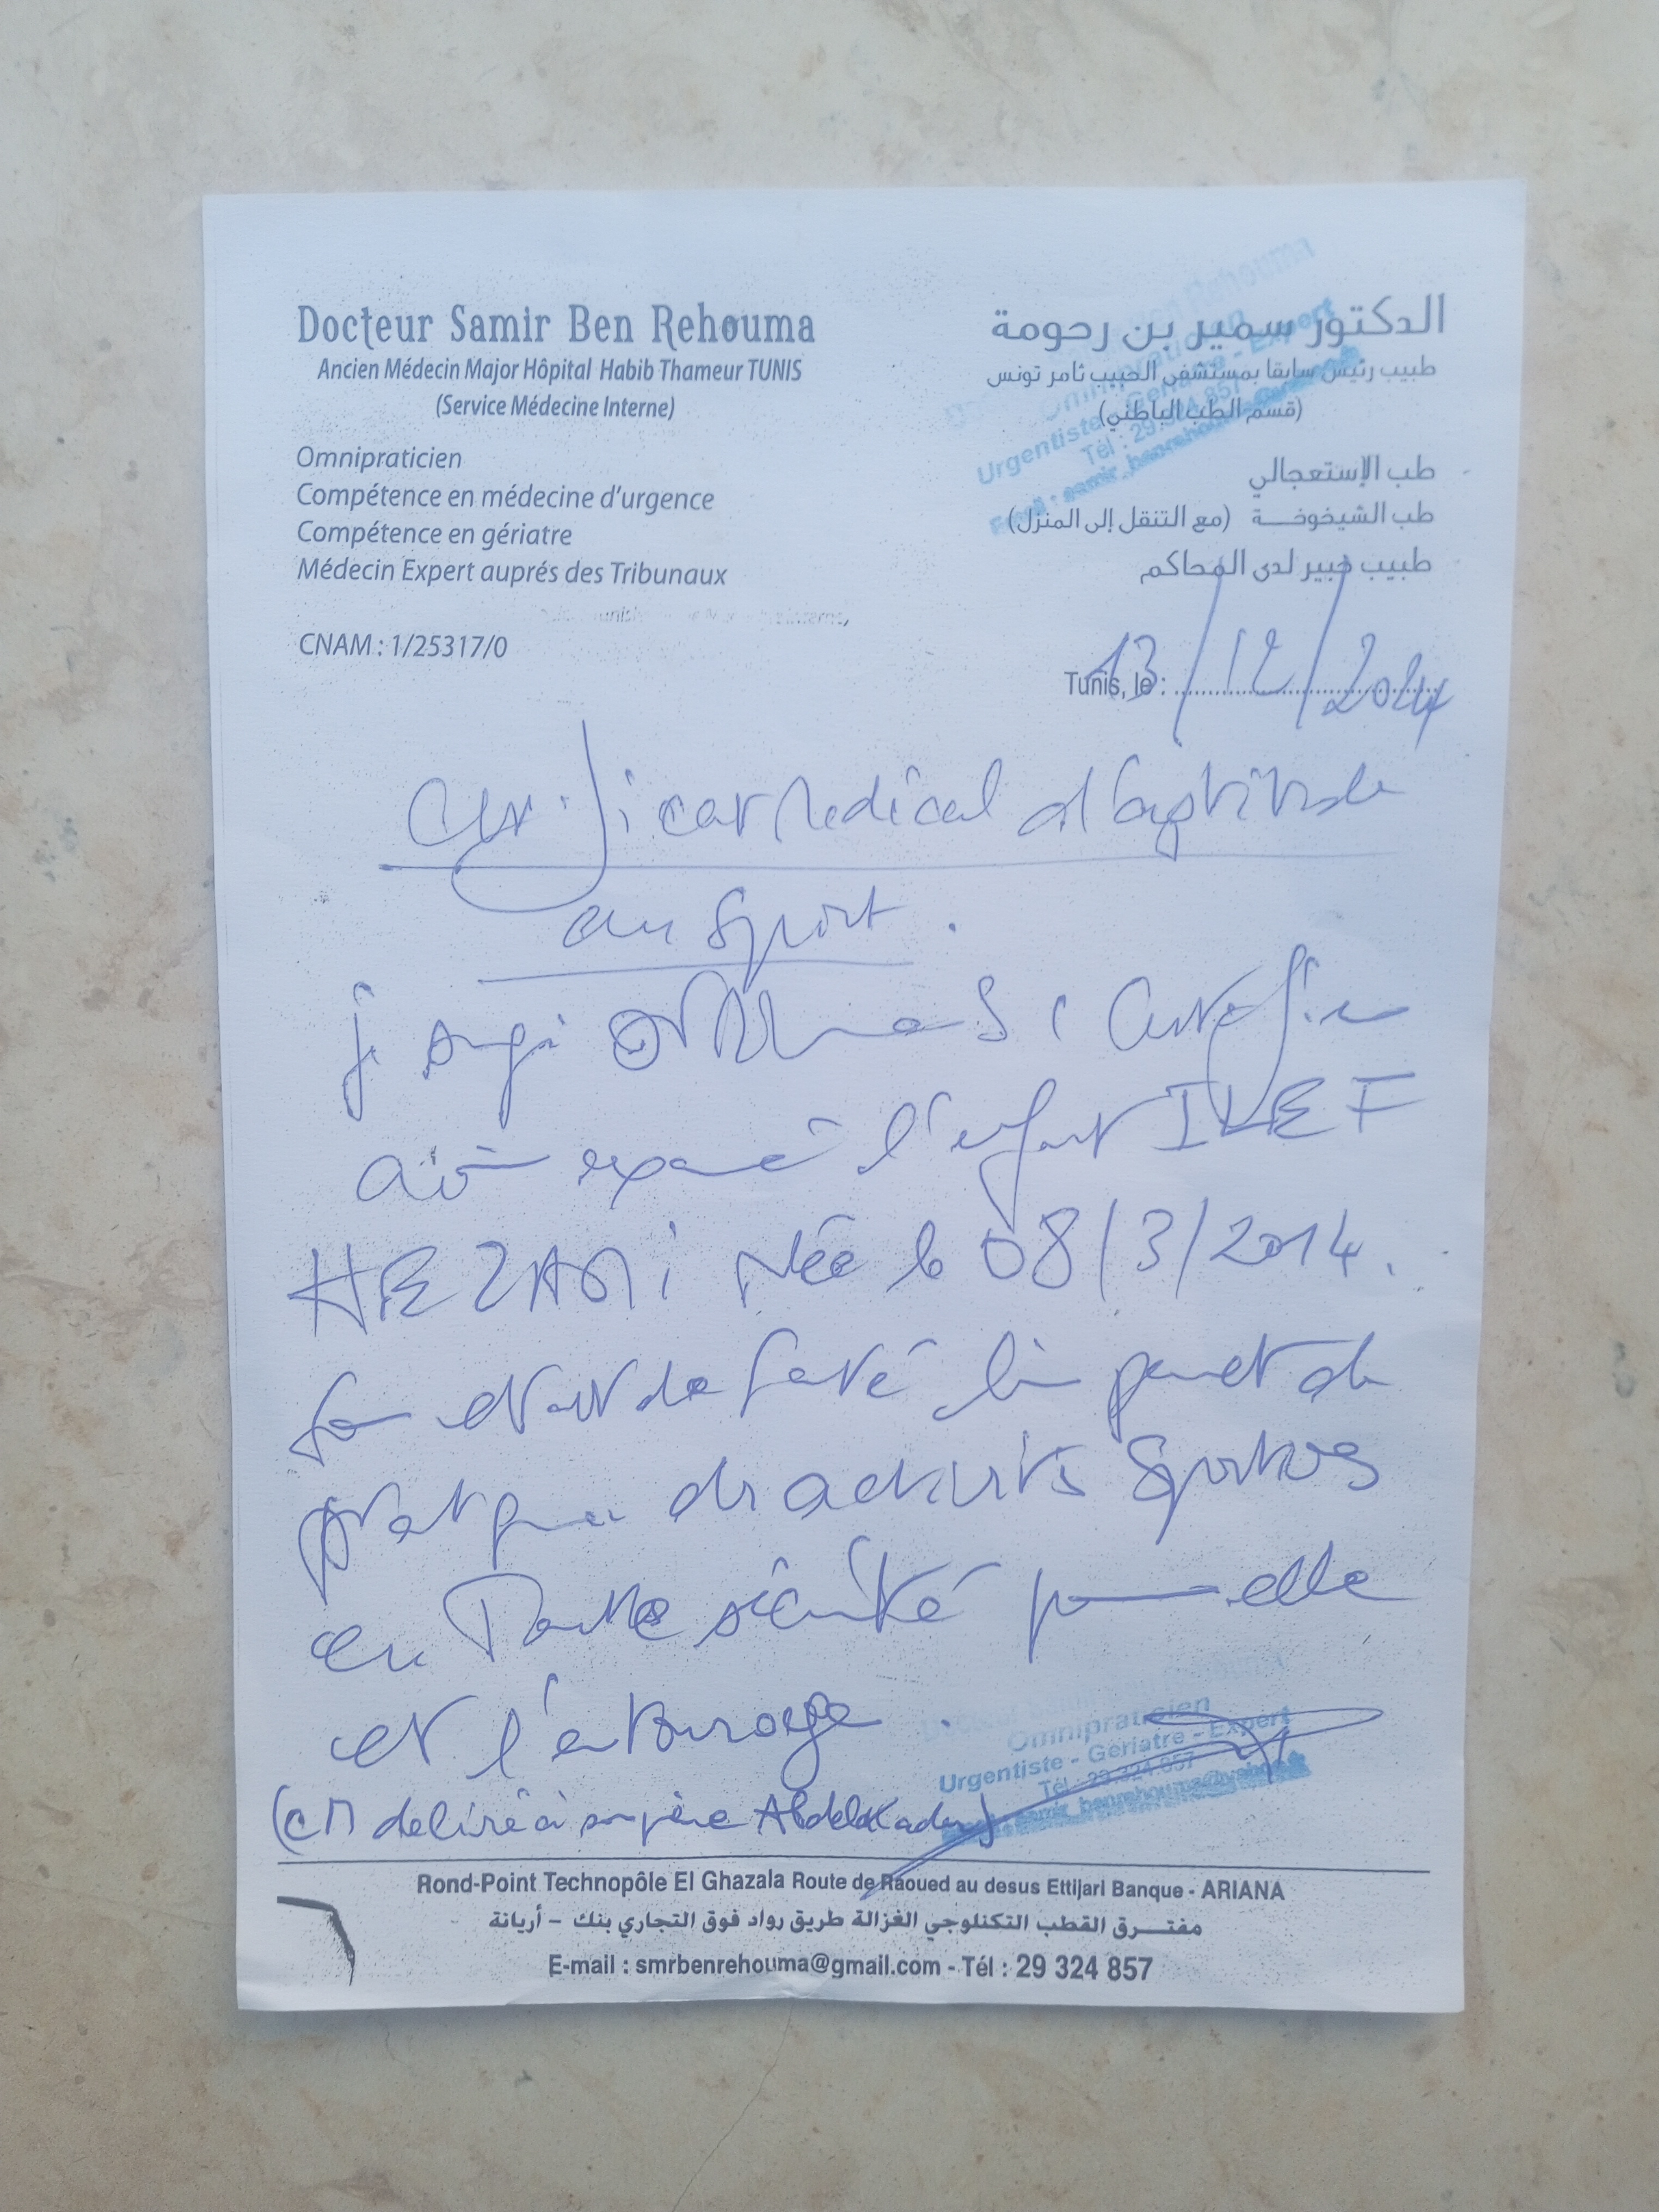 Docteur Samir Ben Rehouma
Ancien Médecin Major Hôpital Habib Thameur TUNIS
(Service Médecine Interne)
Omnipraticien
Compétence en médecine d'urgence
Compétence en gériatre
Médecin Expert auprés des Tribunaux
CNAM : 1/25317/0
الدكتور سمير بن رحومة
طبيب رئيس سابقا بمستشفى الحبيب ثامر تونس
(قسم الطب الباطني)
طب الإستعجالي
طب الشيخوخة (مع التنقل إلى المنزل)
طبيب خبير لدى المحاكم
Urgentiste - Gériatre - Expert
Tél : 29.324.857
Tunis, le : 13/12/2024
Certificat Médical d'aptitude
au sport.
je certifie
avoir examiné l'enfant
HEZAMI Née le 08/3/2014.
Son état de santé lui permet de
pratiquer des activités sportives
en toute sécurité pour elle
et l'entourage.
Omnipraticien
Urgentiste - Gériatre - Expert
Tél : 29.324.857
(CM délivré à son père Abdelkader)
Rond-Point Technopôle El Ghazala Route de Raoued au desus Ettijari Banque - ARIANA
مفترق القطب التكنلوجي الغزالة طريق رواد فوق التجاري بنك - أريانة
E-mail : smrbenrehouma@gmail.com - Tél : 29 324 857